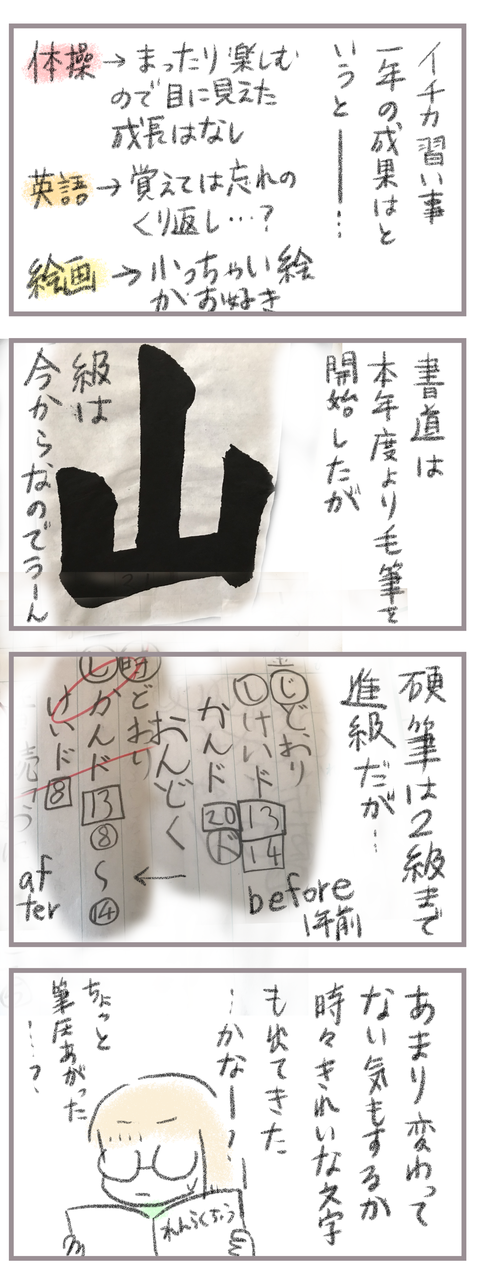 イチカ習い事
一年の成果はと
いうと――…
体操→まったり楽しむ
ので目に見えた
成長はなし
英語→覚えては忘れの
くり返し…?
絵画→小っちゃい絵
がお好き
書道は
本年度より毛筆を
開始したが
山
級は
今からなのでうーん
硬筆は2級まで
進級だが…
before
1年前
じどおり
しけいド13
14
かんド20ド
おんどく
←
明どおり
しかんド13⑧〜⑭
けいド8
after
あまり変わって
ない気もするが
時々きれいな文字
も出てきた
…かなー?
ちょっと
筆圧あがった
…?
れんらくちょう